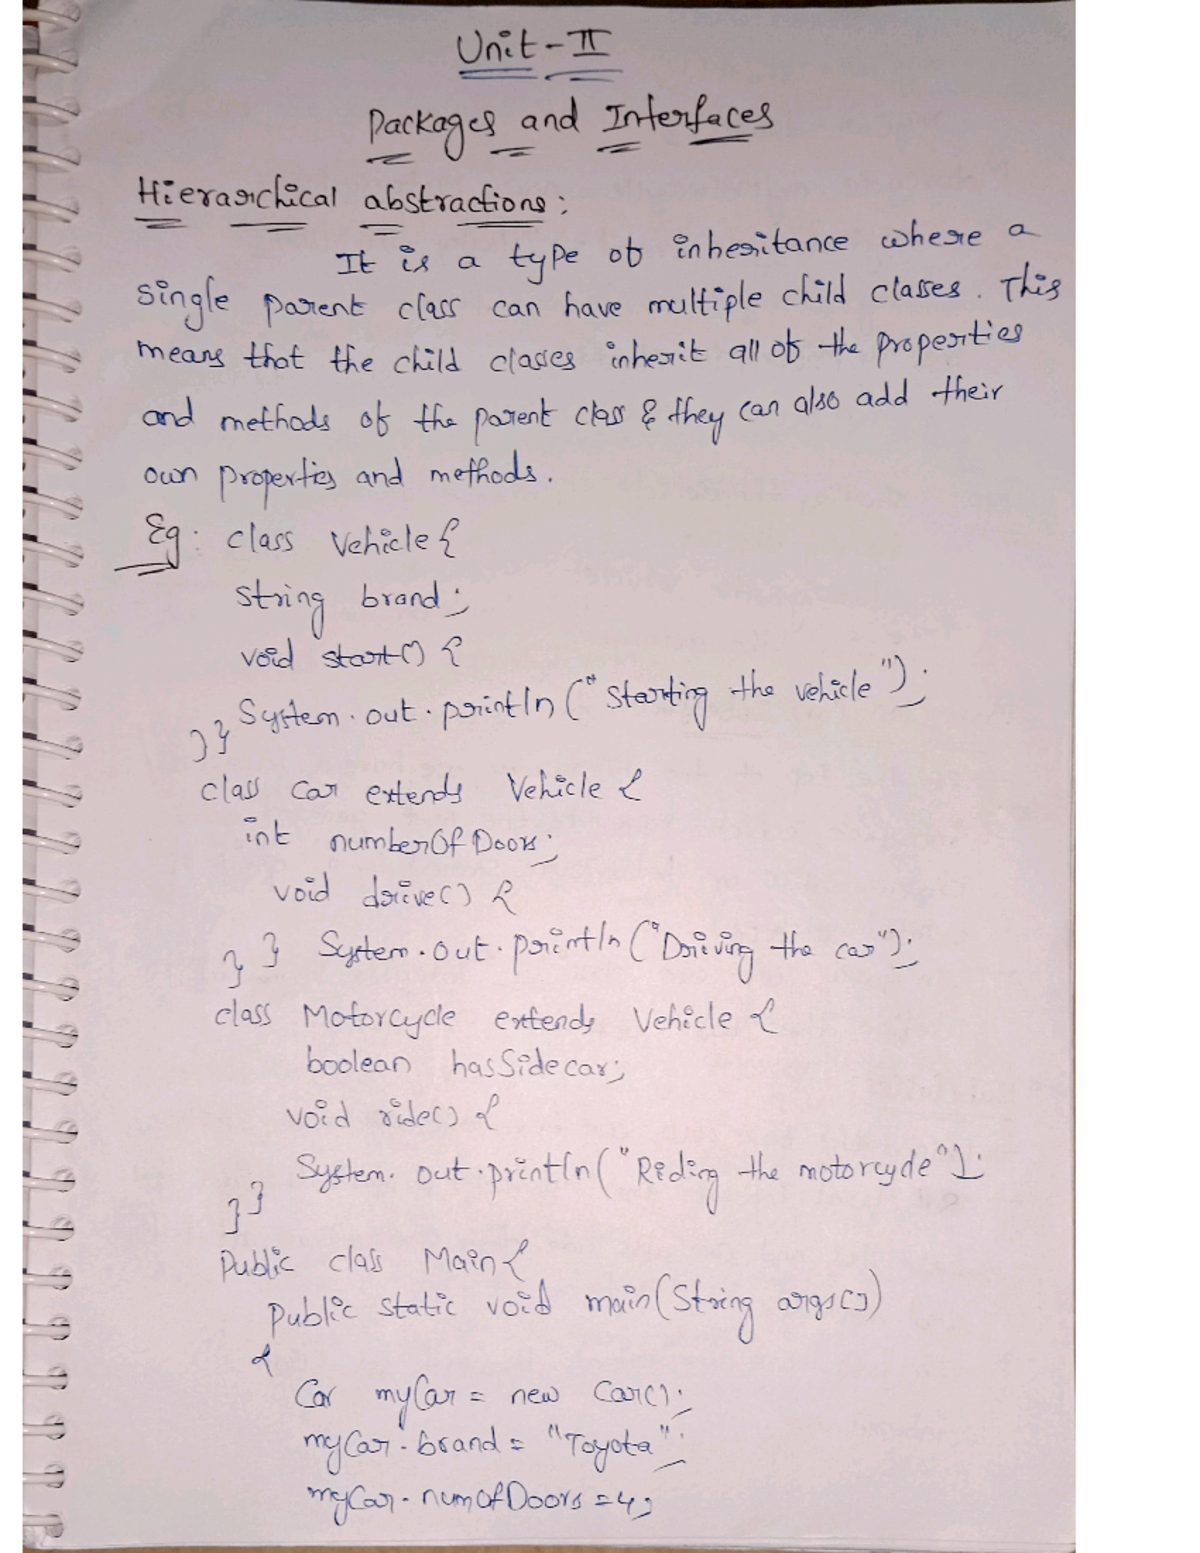 Unit-II
Packages and Interfaces
Hierarchical abstractions:
It is a type of inheritance where a
single parent class can have multiple child classes. This
means that the child classes inherit all of the properties
and methods of the parent class & they can also add their
own properties and methods.
Eg: class Vehicle {
String brand;
void start() {
System.out.println("Starting the vehicle");
}}
class Car extends Vehicle {
int numberOfDoors;
void drive() {
}} System.out.println("Driving the car");
class Motorcycle extends Vehicle {
boolean hasSidecar;
void ride() {
System.out.println("Riding the motorcycle");
}}
Public class Main {
Public static void main(String args[])
{
Car myCar = new Car();
myCar.brand = "Toyota";
myCar.numOfDoors = 4;